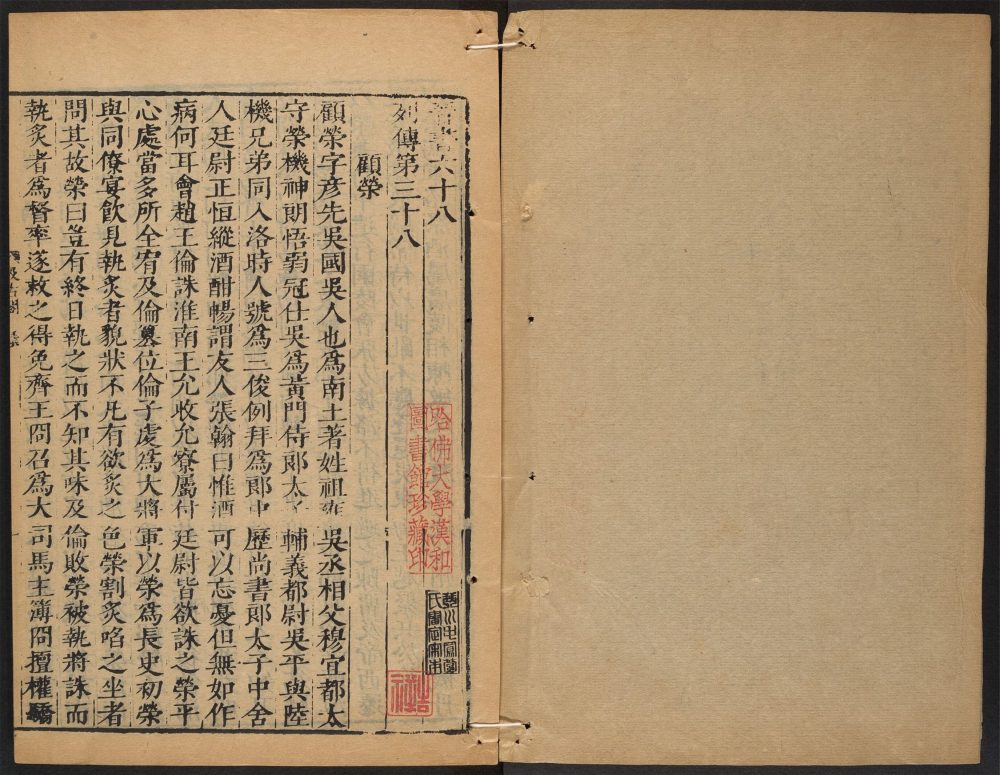 晉書六十八
列傳第三十八
顧榮
顧榮字彥先吳國吳人也爲南土著姓祖雍吳丞相父穆宜都太
守榮機神朗悟弱冠仕吳爲黃門侍郎太子輔義都尉吳平與陸
機兄弟同入洛時人號爲三俊例拜爲郎中歷尚書郎太子中舍
人廷尉正恒縱酒酣暢謂友人張翰曰惟酒可以忘憂但無如作
病何耳會趙王倫誅淮南王允收允寮屬付廷尉皆欲誅之榮平
心處當多所全宥及倫篡位倫子虔爲大將軍以榮爲長史初榮
與同僚宴飲見執炙者貌狀不凡有欲炙之色榮割炙啗之坐者
問其故榮曰豈有終日執之而不知其味及倫敗榮被執將誅而
執炙者爲督率遂救之得免齊王冏召爲大司馬主簿冏擅權驕
汲古閣
哈佛大學漢和
圖書館珍藏印